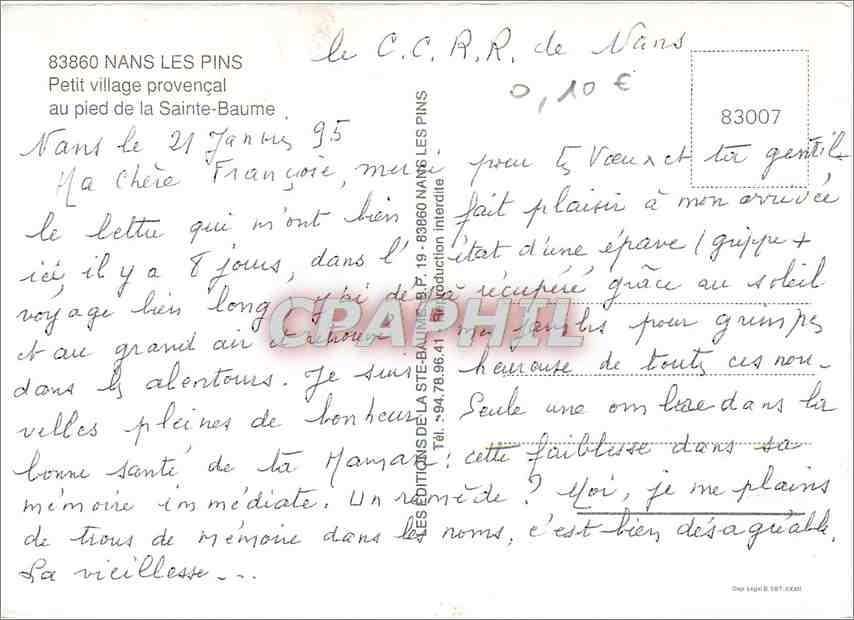 83860 NANS LES PINS
Petit village provençal
au pied de la Sainte-Baume
le C.C.R.R. de Nans
0,10 €
83007
Nans le 21 Janvier 95
Ma Chère Françoise, merci pour tes Vœux et ta gentil-
le lettre qui m'ont bien fait plaisir à mon arrivée
ici il y a 8 jours, dans l'état d'une épave (grippe +
voyage bien long, j'ai déjà récupéré grâce au soleil
et au grand air et retrouvé mes jambes pour grimper
dans les alentours. Je suis heureuse de toutes ces nou-
velles pleines de bonheur. Seule une ombre dans la
bonne santé de ta Maman : cette faiblesse dans sa
mémoire immédiate. Un remède ? Moi, je me plains
de trous de mémoire dans les noms, c'est bien désagréable.
La vieillesse...
LES EDITIONS DE LA STE-BAUME - B.P. 19 - 83860 NANS LES PINS
Tél. : 94.78.96.41 Reproduction interdite
CPAPHIL